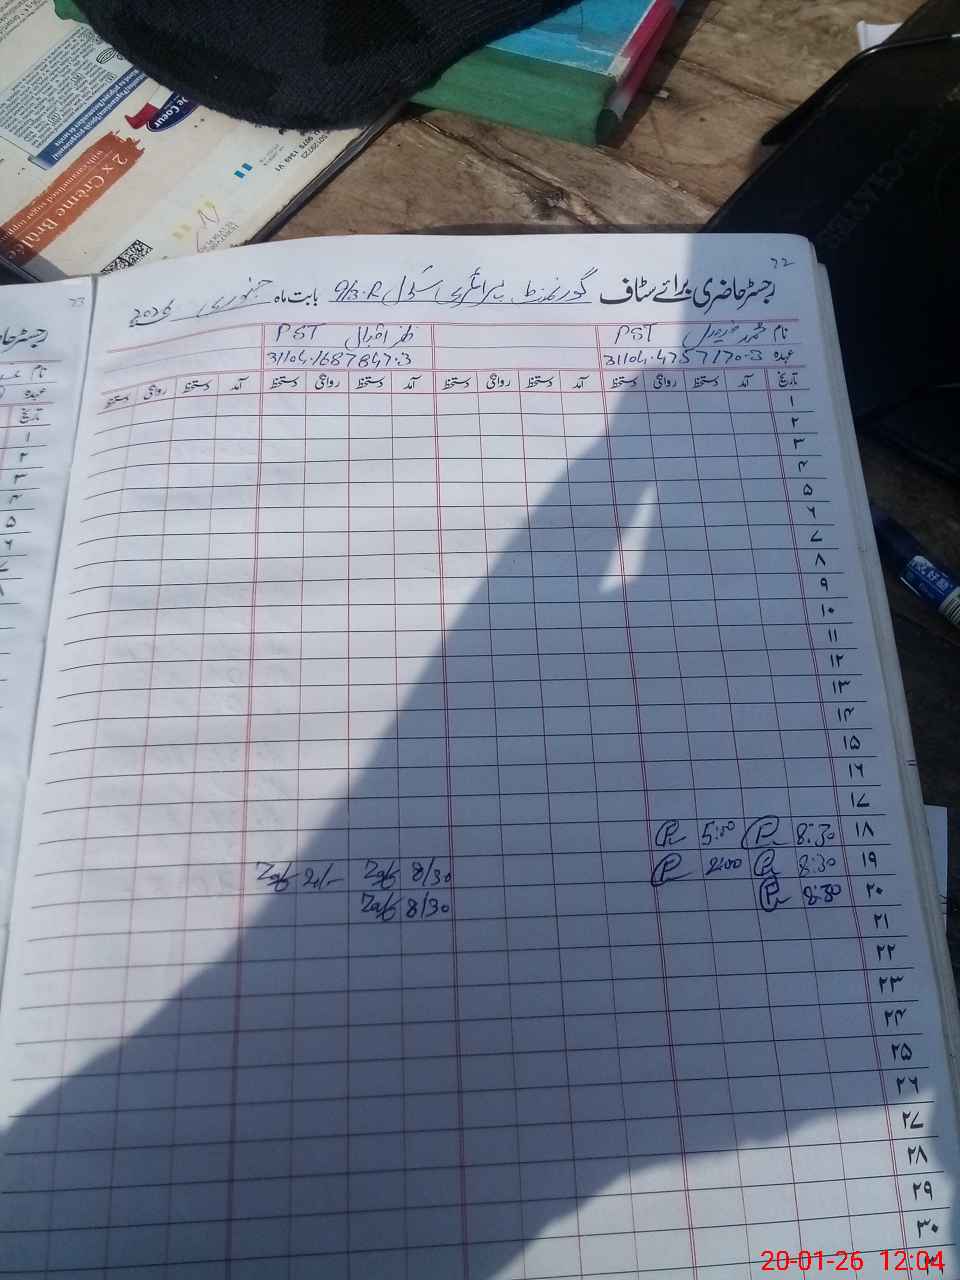 ۲۲
رجسٹر حاضری برائے سٹاف گورنمنٹ پرائمری سکول 9/3.R بابت ماہ جنوری 2026
نام محمد PST ظفر اقبال PST
عہدہ 31104.4757170.3 31104.1687847.3
تاریخ آمد دستخط روانگی دستخط آمد دستخط روانگی دستخط آمد دستخط روانگی دستخط آمد دستخط روانگی دستخط
۱
۲
۳
۴
۵
۶
۷
۸
۹
۱۰
۱۱
۱۲
۱۳
۱۴
۱۵
۱۶
۱۷
۱۸ 8:30 5:00
۱۹ 8:30 2:00 8/30 Zaf 2/- Zaf
۲۰ 8:30 8/30 Zaf
۲۱
۲۲
۲۳
۲۴
۲۵
۲۶
۲۷
۲۸
۲۹
۳۰
۳۱
۲۳
رجسٹر
نام
عہدہ
تاریخ
۱
۲
۳
۴
۵
۶
۷
۸
de Coeur
2 x Crème Brûlée
with caramelised sugar topping
20-01-26 12:04